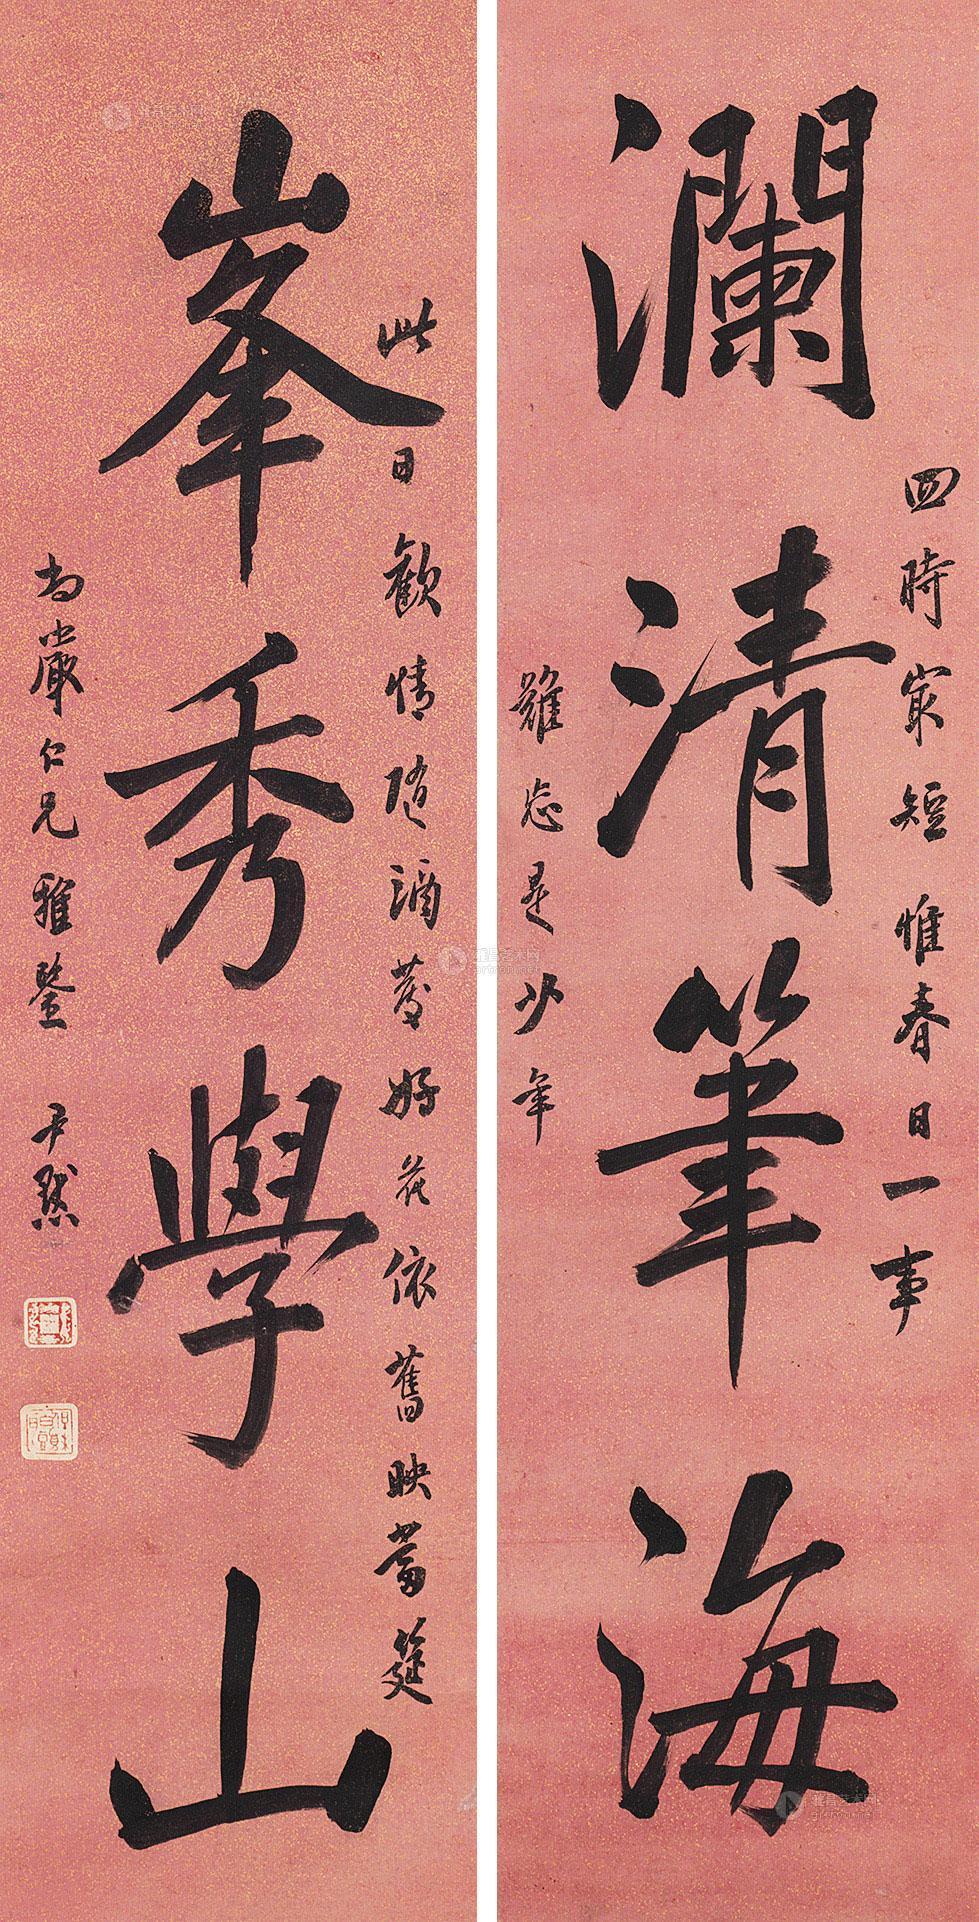 四時㝡短惟春日一事
瀾清筆海
難忘是少年
此日歡情隨酒發好花依舊映當筵
峯秀學山
尚嚴仁兄雅鑒 尹默